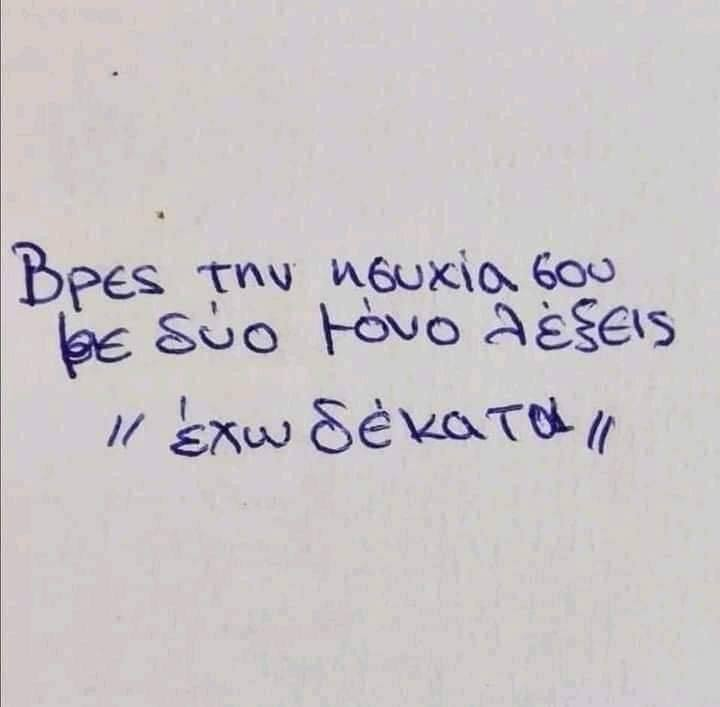 Βρες την ησυχία σου
με δύο μόνο λέξεις
" έχω δέκατα "